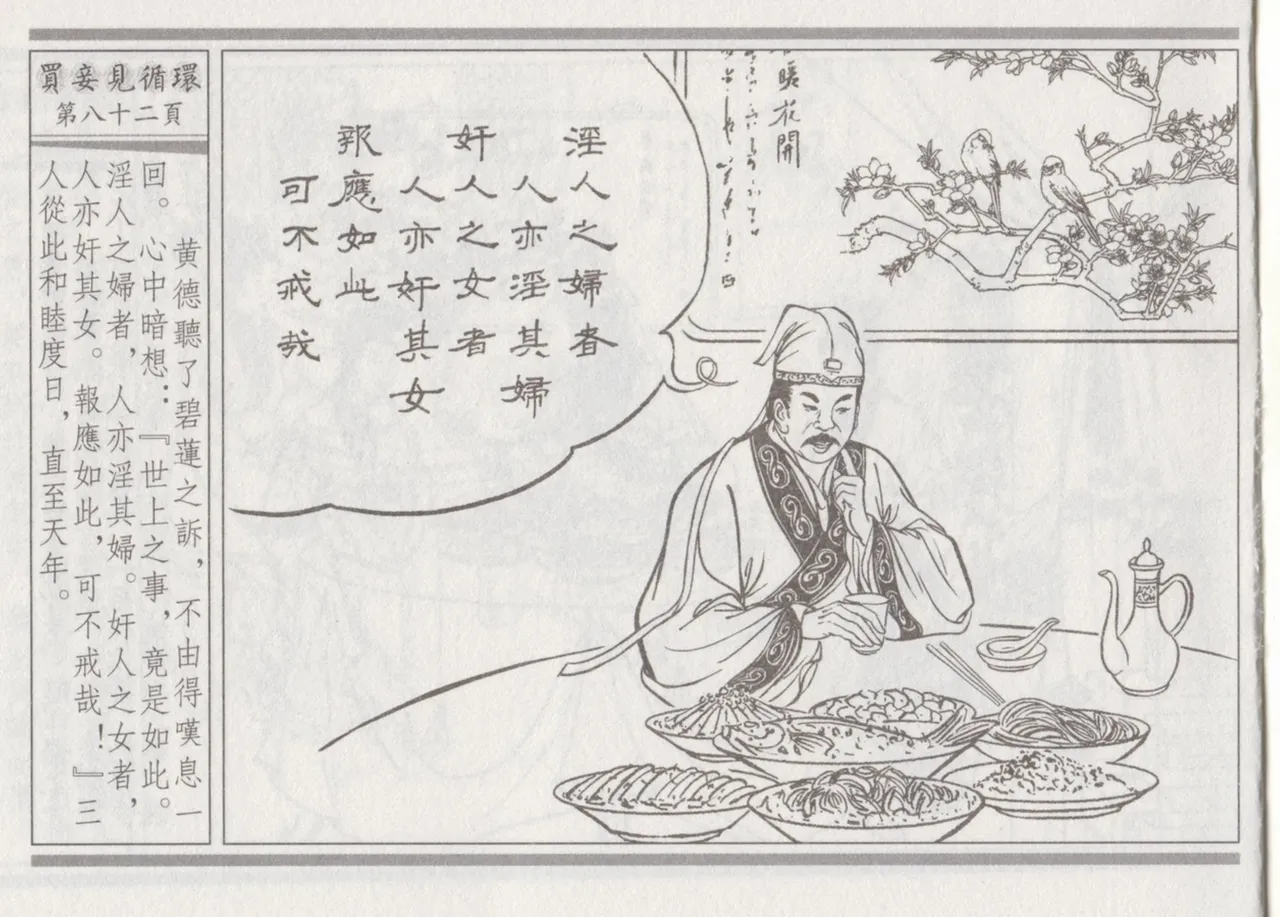 買妾見循環
第八十二頁
黄德聽了碧蓮之訴，不由得嘆息一
回。心中暗想：『世上之事，竟是如此。
淫人之婦者，人亦淫其婦。奸人之女者，
人亦奸其女。報應如此，可不戒哉！』三
人從此和睦度日，直至天年。
淫人之婦者
人亦淫其婦
奸人之女者
人亦奸其女
報應如此
可不戒哉
暖花開